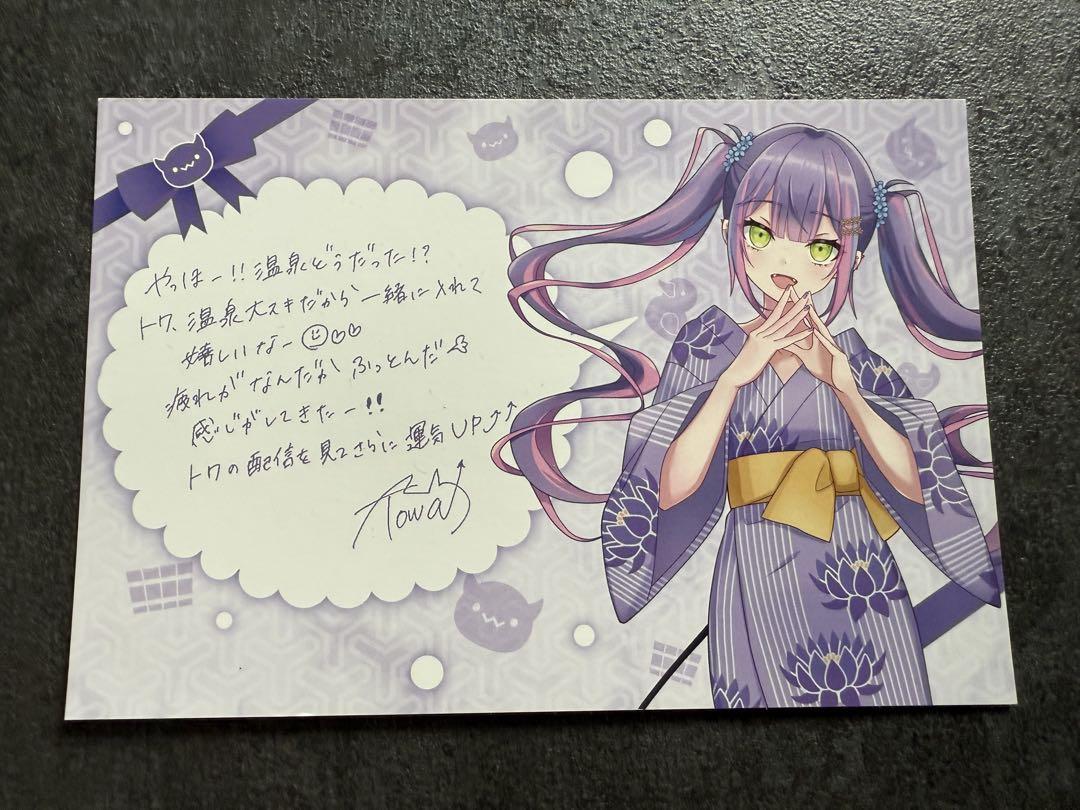 やっほー!!温泉どうだった!?
トワ、温泉大スキだから一緒に入れて
嬉しいなー
疲れがなんだか ふっとんだ
感じがしてきたー!!
トワの配信を見てさらに運気UP⤴↑
Towa